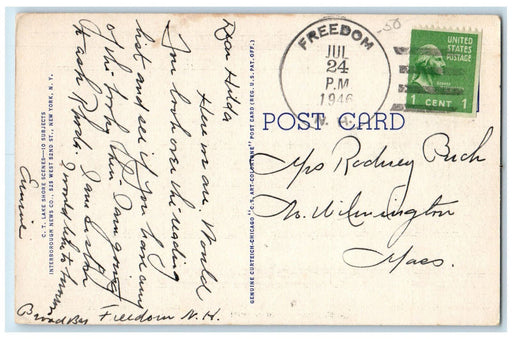 Dear Hilda
Here we are. Would
you look over the reading
list and see if you have any
of the books then I am going
to ask Rhoda. I am
I would like to
Eunice
Broad Bay Freedom N. H.
C. T. LAKE SHORE SCENES—10 SUBJECTS
INTERBOROUGH NEWS CO., 523 WEST 52ND ST., NEW YORK, N. Y.
GENUINE CURTEICH-CHICAGO "C. T. ART-COLORTONE" POST CARD (REG. U. S. PAT. OFF.)
-50
FREEDOM
JUL
24
P.M
1946
N. H.
UNITED
STATES
POSTAGE
1 CENT 1
POST CARD
Mrs Rodney Buck
No. Wilmington
Mass.